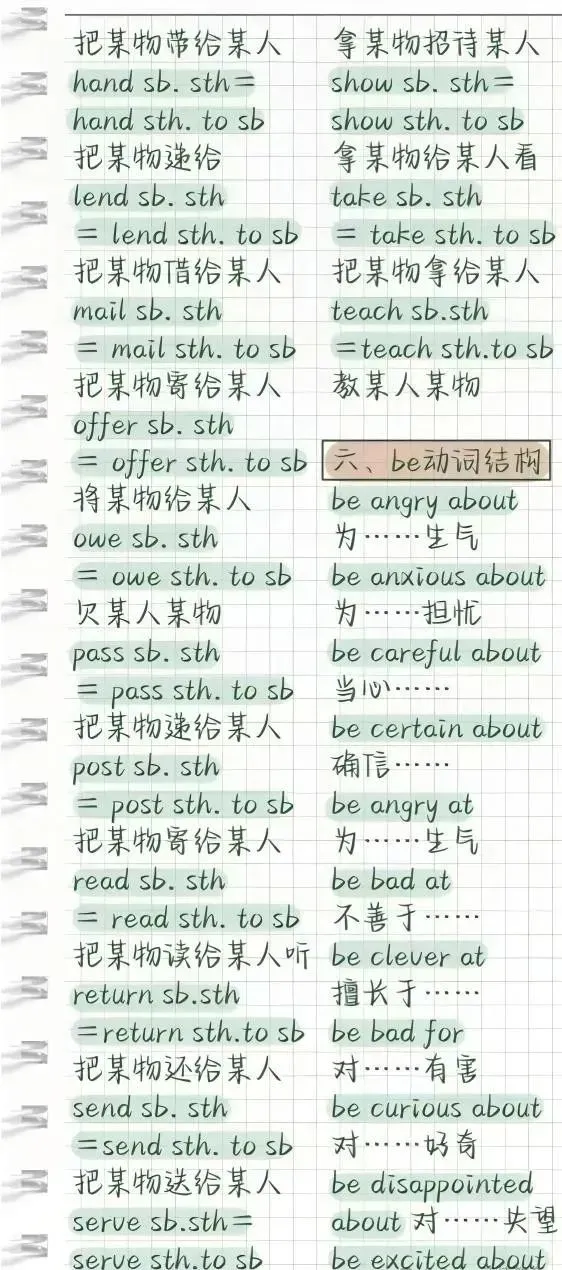 把某物带给某人
hand sb. sth=
hand sth. to sb
把某物递给
lend sb. sth
= lend sth. to sb
把某物借给某人
mail sb. sth
= mail sth. to sb
把某物寄给某人
offer sb. sth
= offer sth. to sb
将某物给某人
owe sb. sth
= owe sth. to sb
欠某人某物
pass sb. sth
= pass sth. to sb
把某物递给某人
post sb. sth
= post sth. to sb
把某物寄给某人
read sb. sth
= read sth. to sb
把某物读给某人听
return sb.sth
=return sth.to sb
把某物还给某人
send sb. sth
=send sth. to sb
把某物送给某人
serve sb.sth=
serve sth.to sb
拿某物招待某人
show sb. sth=
show sth. to sb
拿某物给某人看
take sb. sth
= take sth. to sb
把某物拿给某人
teach sb.sth
=teach sth.to sb
教某人某物
六、be动词结构
be angry about
为……生气
be anxious about
为……担忧
be careful about
当心……
be certain about
确信……
be angry at
为……生气
be bad at
不善于……
be clever at
擅长于……
be bad for
对……有害
be curious about
对……好奇
be disappointed
about 对……失望
be excited about